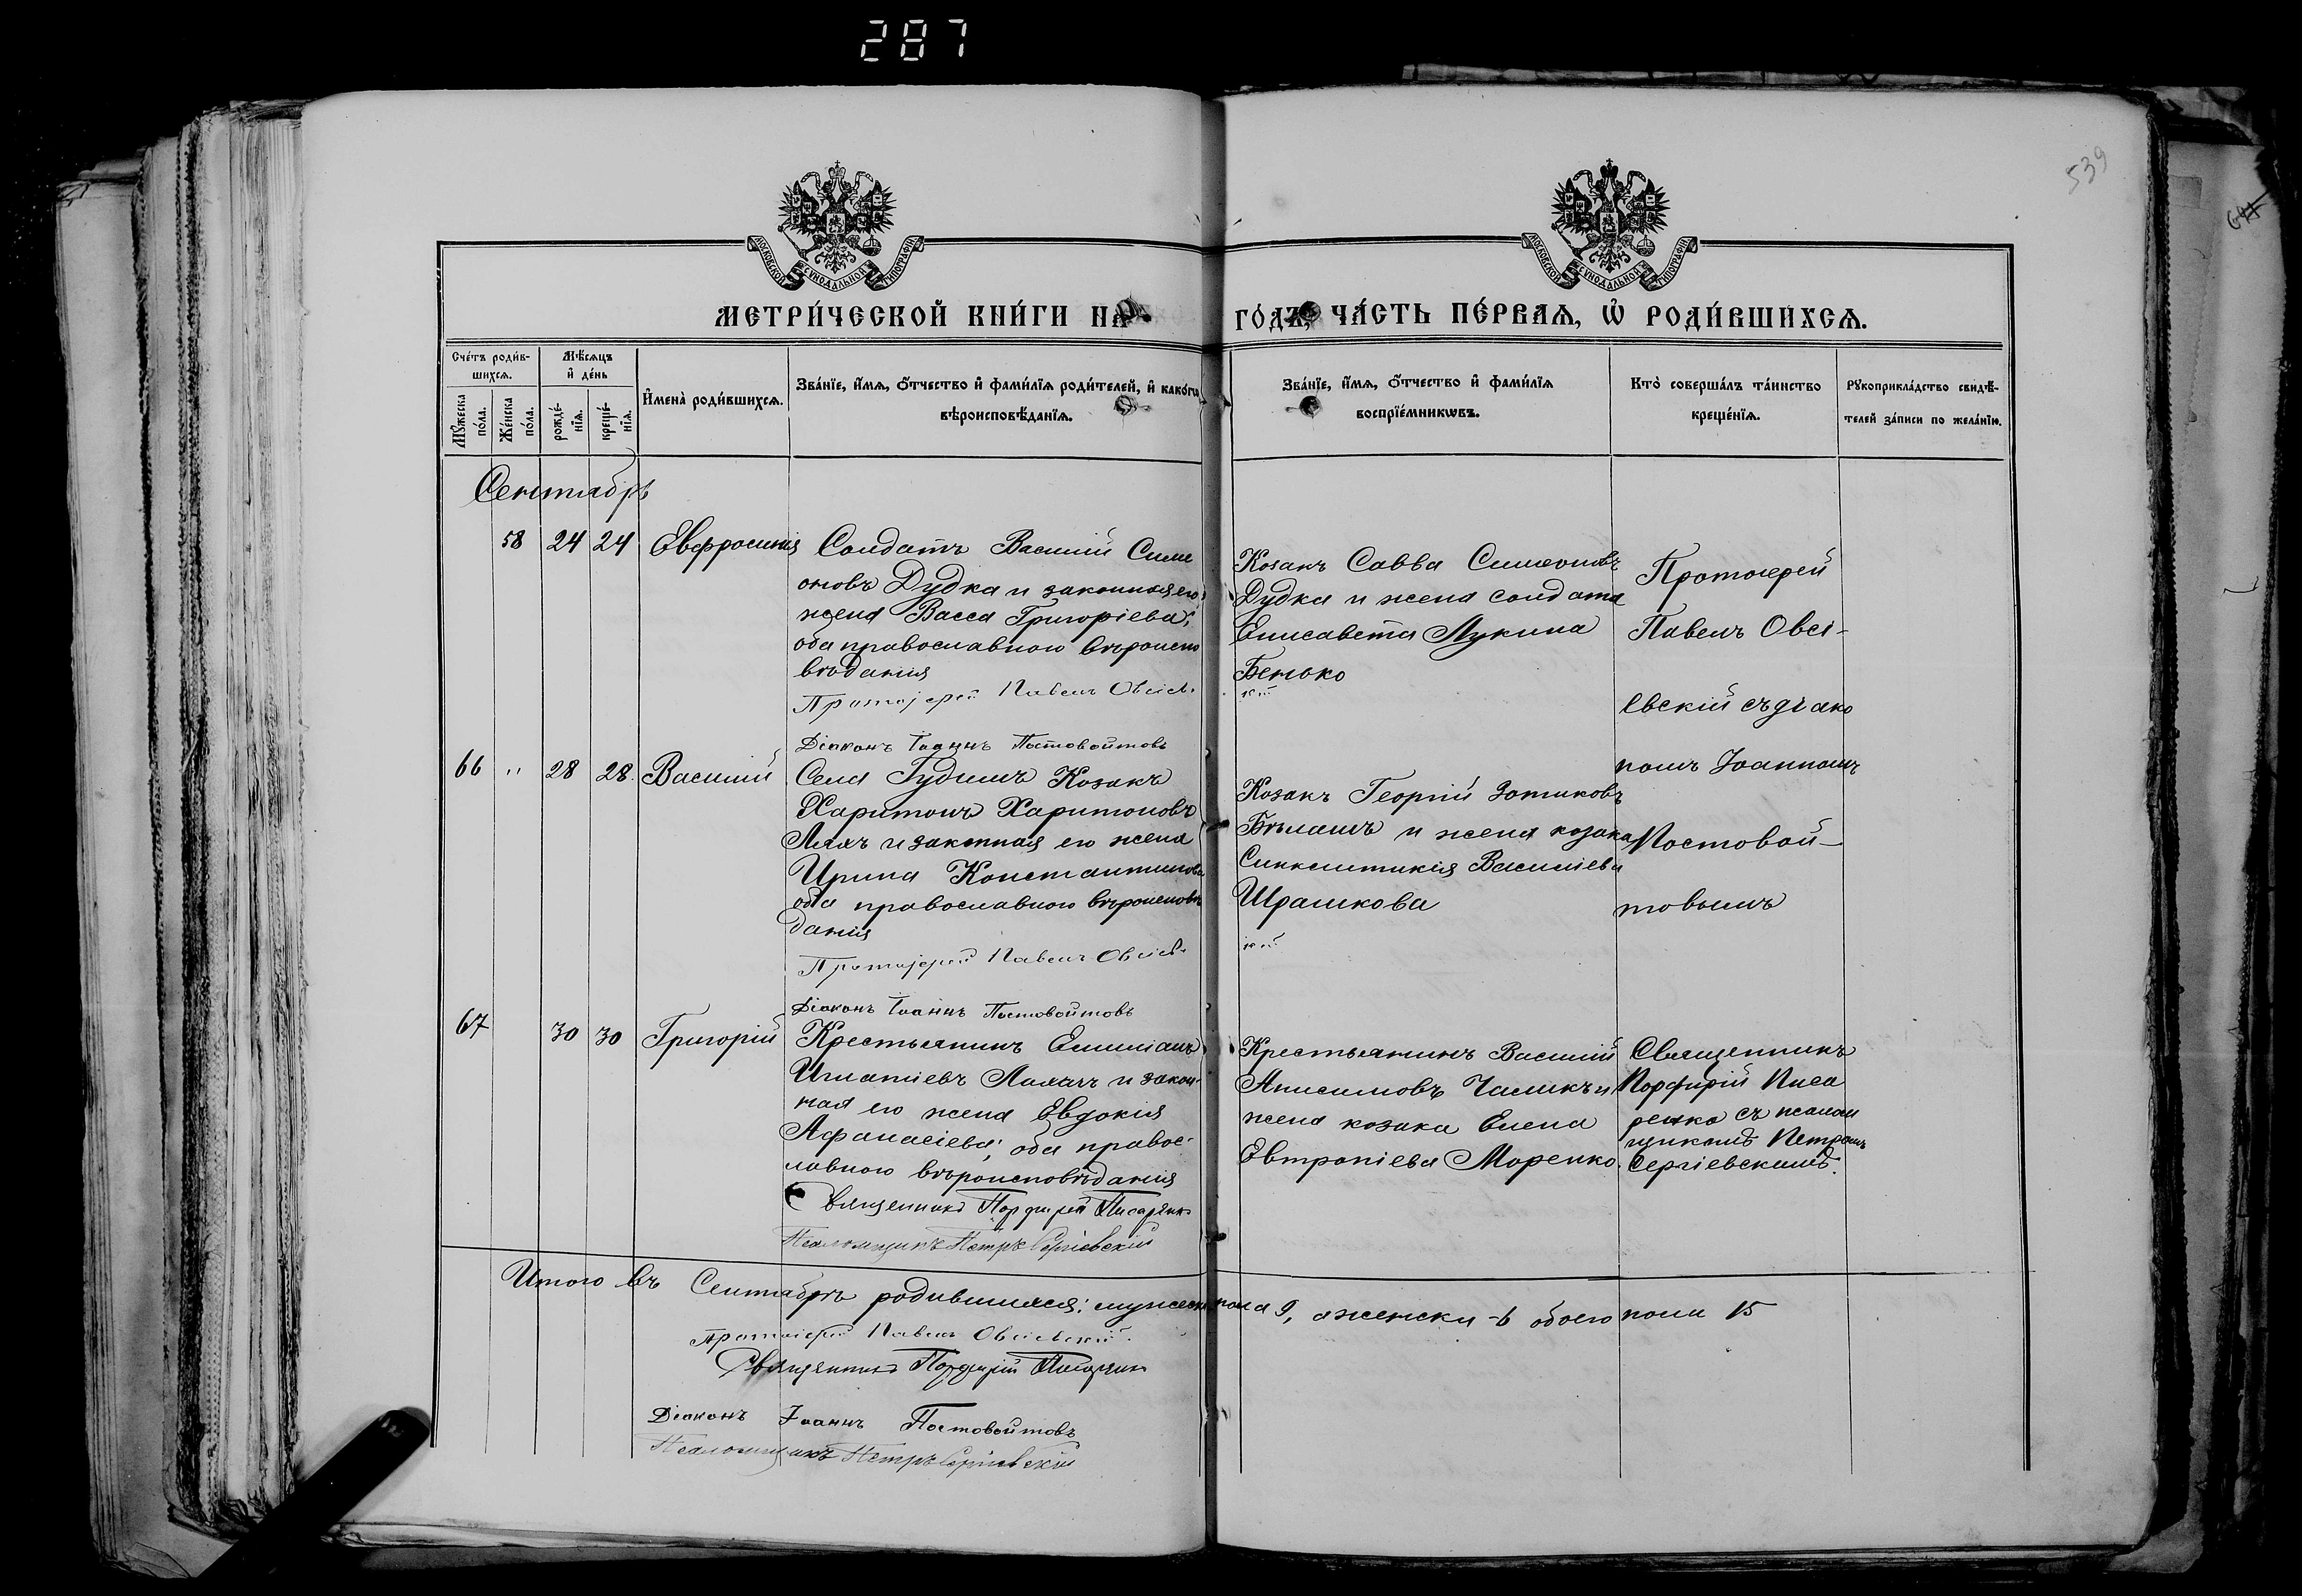 287
539
МОСКОВСКОЙ СѴНОДАЛЬНОЙ ТИПОГРАФІИ
МОСКОВСКОЙ СѴНОДАЛЬНОЙ ТИПОГРАФІИ
МЕТРИ́ЧЕСКОЙ КНИ́ГИ НА
ГО́ДЪ, ЧА́СТЬ ПЕ́РВАЯ, Ѡ҆ РОДИ́ВШИХСЯ.
Сче́тъ роди́в-
шихся.
Мѣ́сяцъ
и҆ де́нь
Мꙋ́жеска
по́ла.
Же́нска
по́ла.
рожде́-
нїя.
креще́-
нїя.
И҆мена̀ роди́вшихся.
Зва́нїе, и҆́мя, ѻ҆́тчество и҆ фами́лїя роди́телей, и҆ како́гѡ
вѣроисповѣ́данїя.
Зва́нїе, и҆́мя, ѻ҆́тчество и҆ фами́лїя
воспрїе́мникѡвъ.
Кто̀ соверша́лъ та́инство
креще́нїя.
Рꙋкоприкла́дство свидѣ́-
телей за́писи по жела́нїю.
Сентябрь
58 24 24 Евфросинія
Солдатъ Василій Симе
оновъ Дудка и законная его
жена Васса Григоріева;
оба православного вѣроиспо
вѣданія
Протоіерей Павелъ Овсіев
Діаконъ Іоаннъ Постовойтовъ
Козакъ Савва Симеоновъ
Дудка и жена солдата
Елисавета Лукина
Бетоко
кій
Протоіерей
Павелъ Овсі-
евскій съ діако
номъ Іоанномъ
Постовой-
товымъ
66 " 28 28. Василій
Села Гудимъ Козакъ
Харитонъ Харитоновъ
Ляхъ и законная его жена
Ирина Константинова
оба православного вѣроисповѣ
данія
Протоіерей Павелъ Овсіев
Діаконъ Іоаннъ Постовойтовъ
Козакъ Георгій Зотиковъ
Бѣлашъ и жена козака
Синклитикія Василіева
Шрамкова
кій
67 30 30 Григорій
Крестьянинъ Емиліанъ
Игнатіевъ Лиманъ и закон-
ная его жена Евдокія
Афанасіева; оба правос-
лавного вѣроисповѣданія
Священникъ Порфирій Писаренко
Псаломщикъ Петръ Сергіевскій
Крестьянинъ Василій
Анисимовъ Чамикъ и
жена козака Елена
Евтропіева Моренко.
Священникъ
Порфирій Писа
ренко съ псалом
щикомъ Петромъ
Сергіевскимъ.
Итого въ Сентябрѣ родившихся: мужеск. пола 9, а женски -6 обоего пола 15
Протоіерей Павелъ Овсіевскій.
Священникъ Порфирій Писаренко
Діаконъ Іоаннъ Постовойтовъ
Псаломщикъ Петръ Сергіевскій